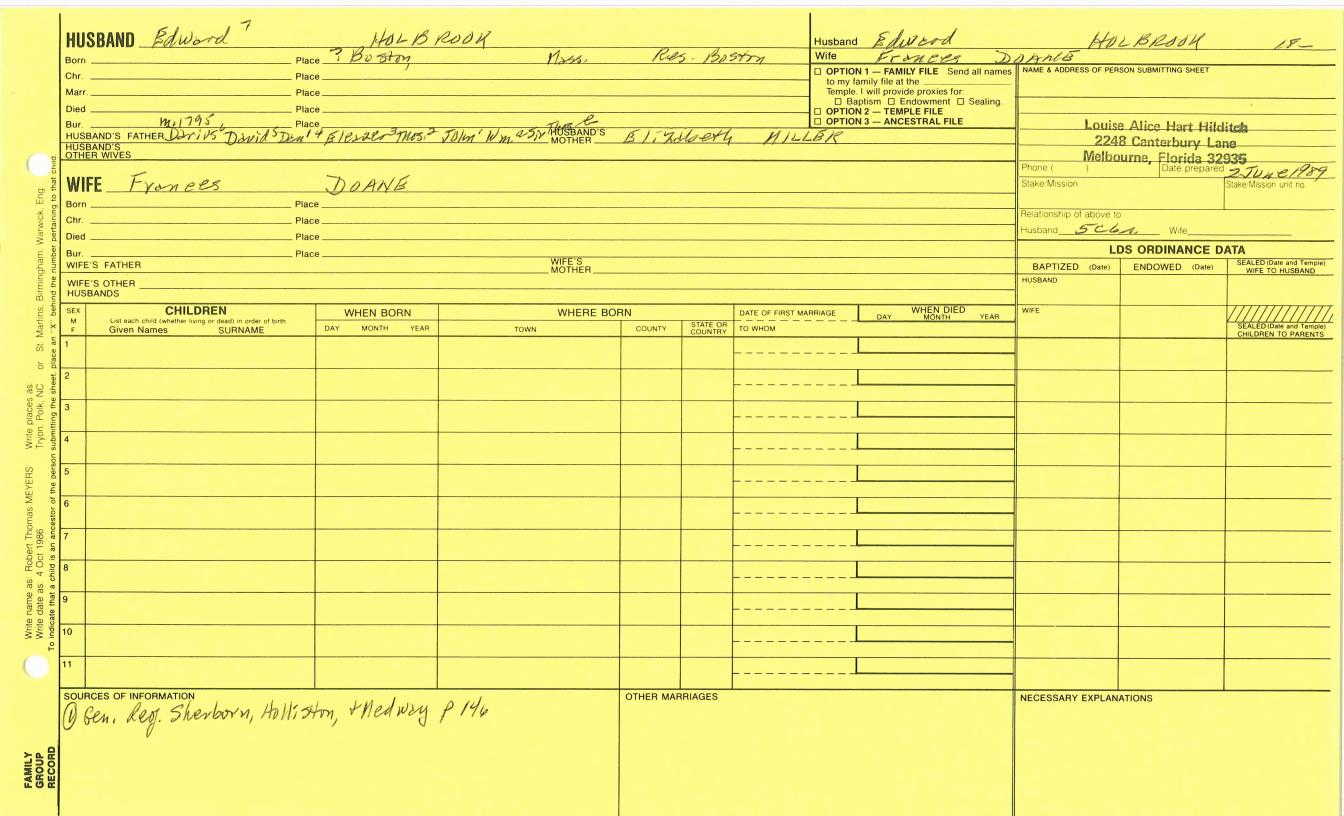 HUSBAND Edward 7 HOLBROOK
Born Place ? Boston, Mass. Res. Boston
Chr. Place
Marr. Place
Died Place
Bur. Place
m. 1795
HUSBAND'S FATHER Darius6 David5 Dan'l4 Eleazer3 Thos.2 John1 Wm. HUSBAND'S MOTHER Elizabeth MILLER
HUSBAND'S OTHER WIVES
Husband Edward HOLBROOK 18—
Wife Frances DOANE
☐ OPTION 1 — FAMILY FILE Send all names
to my family file at the
Temple. I will provide proxies for:
☐ Baptism ☐ Endowment ☐ Sealing.
☐ OPTION 2 — TEMPLE FILE
☐ OPTION 3 — ANCESTRAL FILE
NAME & ADDRESS OF PERSON SUBMITTING SHEET
Louise Alice Hart Hilditch
2248 Canterbury Lane
Melbourne, Florida 32935
Phone ( ) Date prepared 2 June 1989
Stake/Mission Stake/Mission unit no.
Relationship of above to
Husband 5C6r. Wife
WIFE Frances DOANE
Born Place
Chr. Place
Died Place
Bur. Place
WIFE'S FATHER WIFE'S MOTHER
WIFE'S OTHER HUSBANDS
LDS ORDINANCE DATA
BAPTIZED (Date) ENDOWED (Date) SEALED (Date and Temple) WIFE TO HUSBAND
HUSBAND
WIFE
SEALED (Date and Temple) CHILDREN TO PARENTS
SEX M F
CHILDREN
List each child (whether living or dead) in order of birth
Given Names SURNAME
WHEN BORN
DAY MONTH YEAR
WHERE BORN
TOWN COUNTY STATE OR COUNTRY
DATE OF FIRST MARRIAGE
TO WHOM
WHEN DIED
DAY MONTH YEAR
1
2
3
4
5
6
7
8
9
10
11
SOURCES OF INFORMATION
① Gen. Reg. Sherborn, Holliston, + Medway p 146
OTHER MARRIAGES
NECESSARY EXPLANATIONS
Write name as: Robert Thomas MEYERS Write places as: Tryon, Polk, NC or St. Martins, Birmingham, Warwick, Eng.
Write date as: 4 Oct 1986
To indicate that a child is an ancestor of the person submitting the sheet, place an "X" behind the number pertaining to that child.
FAMILY GROUP RECORD